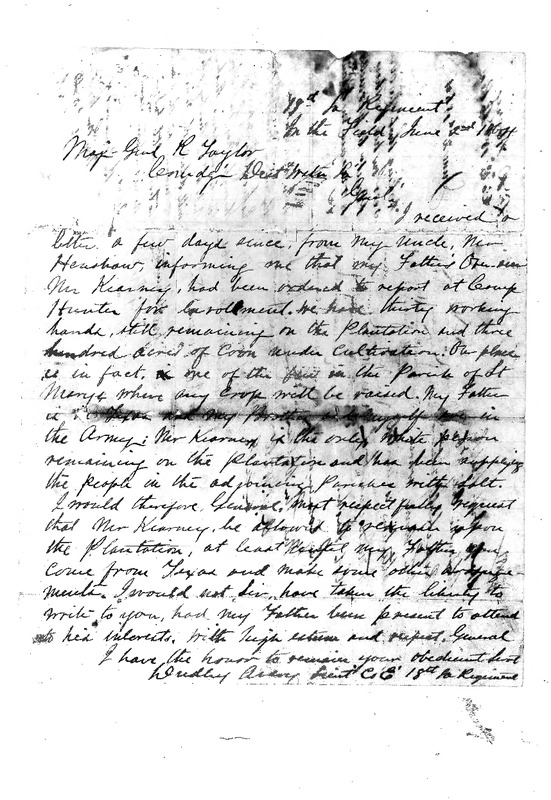 18th La Regiment,
In the Field, June 2nd 1864
Maj. Genl R Taylor
Comdg Dist Westn La
Genl.
I received a
letter a few days since, from my uncle, Mr
Henshaw, informing me that my Fathers Overseer
Mr Kearney, had been ordered to report at Camp
Hunter for Enrollment. We have thirty working
hands, still remaining on the Plantation and three
hundred acres of Corn under Cultivation. Our place
is in fact, one of the few in the Parish of St
Marys where any Crop will be raised. My Father
is in Texas and my Brother and myself are in
the Army; Mr Kearney is the only white person
remaining on the Plantation and has been supplying
the people in the adjoining Parishes with Salt.
I would therefore, General, most respectfully request
that Mr Kearney, be allowed to remain upon
the Plantation, at least until my Father can
come from Texas and make some other arrange-
ments. I would not Sir, have taken the liberty to
write to you, had my Father been present to attend
to his interests. With high esteem and respect, General
I have the honor to remain your obedient Svt
Dudley Avery Lieut Co E 18th La Regiment